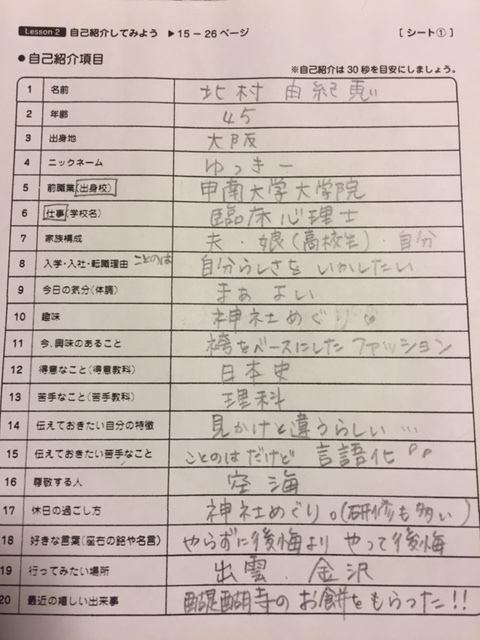 Lesson 2 自己紹介してみよう ▶15－26ページ [シート①]
●自己紹介項目
※自己紹介は30秒を目安にしましょう。
1 名前 北村 由紀恵
2 年齢 45
3 出身地 大阪
4 ニックネーム ゆっきー
5 前職業(出身校) 甲南大学大学院
6 仕事(学校名) 臨床心理士
7 家族構成 夫・娘(高校生)・自分
8 入学・入社・転職理由 ことのは 自分らしさを いかしたい
9 今日の気分(体調) まぁ よい
10 趣味 神社めぐり
11 今、興味のあること 袴をベースにしたファッション
12 得意なこと(得意教科) 日本史
13 苦手なこと(苦手教科) 理科
14 伝えておきたい自分の特徴 見かけと違うらしい…
15 伝えておきたい苦手なこと ことのはだけど 言語化
16 尊敬する人 空海
17 休日の過ごし方 神社めぐり。(研修も多い)
18 好きな言葉(座右の銘や名言) やらずに後悔より やって後悔
19 行ってみたい場所 出雲・金沢
20 最近の嬉しい出来事 醍醐寺の お餅をもらった!!